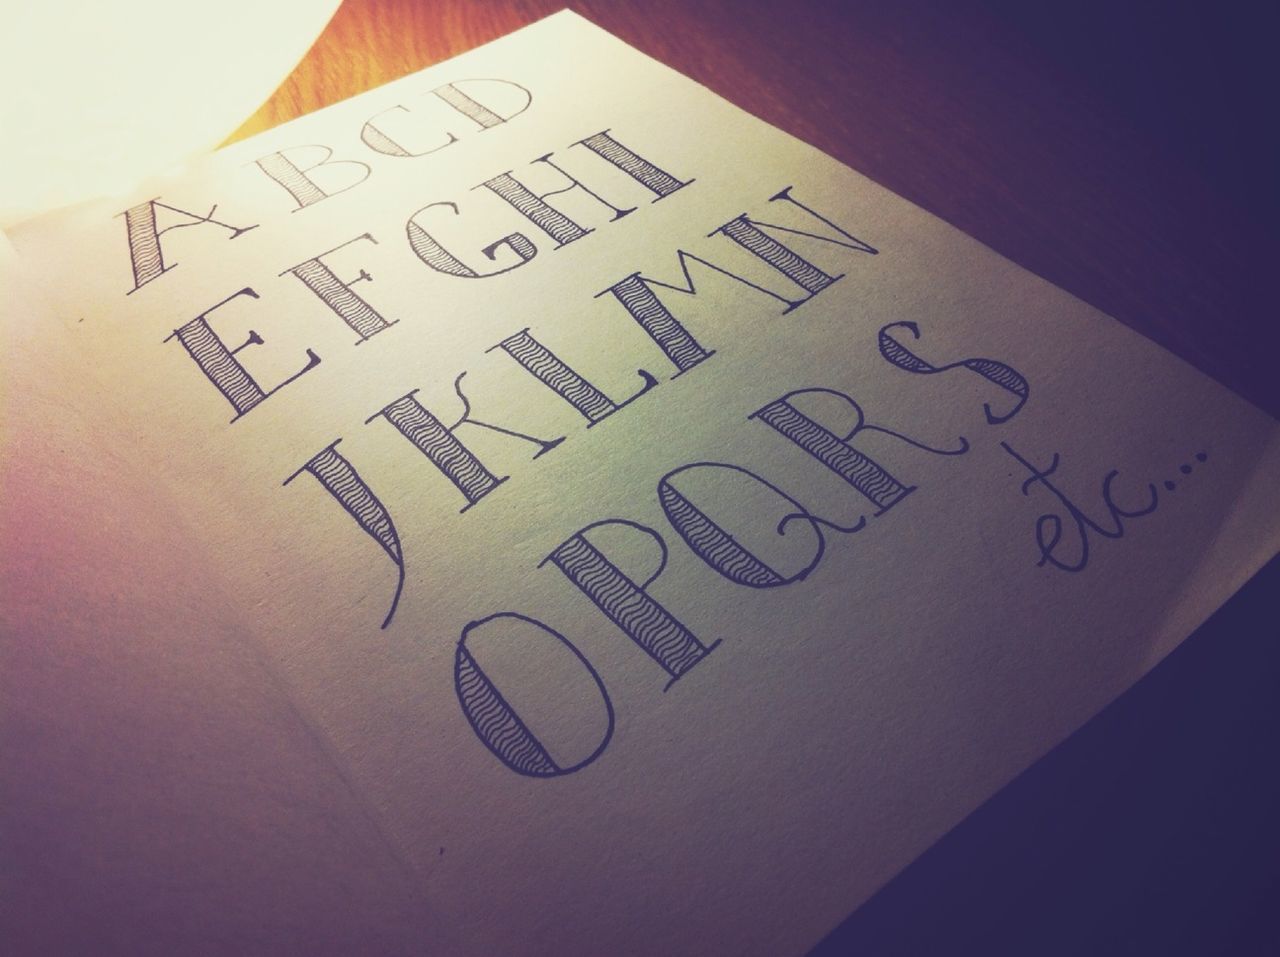 ABCD
EFGHI
JKLMN
OPQRS
etc...